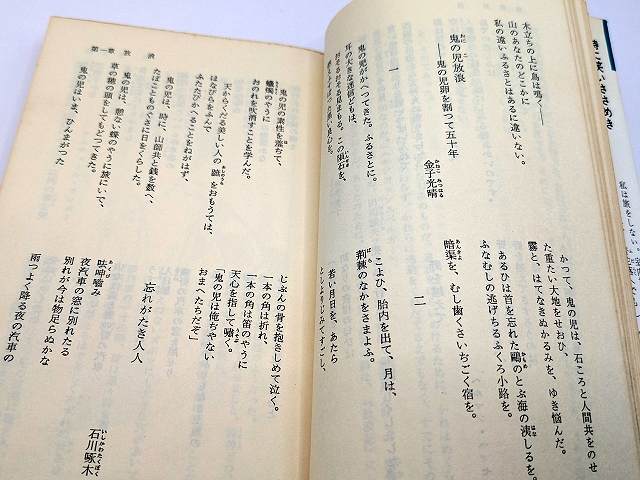 木立ちの上に鳥は鳴く――
山のあなたのどこかに
私の違いふるさとはあるに違いない。
鬼の児放浪
――鬼の児卵を割つて五十年
金子光晴
かねこ
みつはる
一
鬼の児がかへつてきた。ふるさとに。
耳の大きな迷信どもは、
おそるおそる見まもる。この隕石を、
かつて、鬼の児は、石ころと人間共をのせ
た重たい大地をせおひ、
霧と、はてなきぬかるみを、ゆき悩んだ。
あるひは首を忘れた鷗のとぶ海の洟しるを。
ふなむしの逃げちるふくろ小路を。
暗渠を、むし歯くさいちごく宿を。
二
こよひ、胎内を出て、月は、
荊棘のなかをさまよふ。
若い月日を、あたら
としよりじみてすごし、
鬼の児の素性を落ちて、
蠟燭のやうに
おのれを吹消すことを学んだ。
天からくだる美しい人の蹠をおもうては、
はなびらをふんで
ふたたびかへることをねがはず、
鬼の児は、時に、山師共と銭を数へ、
たばこものぐさに日をくらした。
鬼の児は、憩ない蝶のやうに旅にいで、
草の穂の頭をしてもどつてきた。
鬼の児はいま、ひんまがつた
じぶんの骨を抱きしめて泣く。
一本の角は折れ、
一本の角は笛のやうに
天心を指して嘯く。
「鬼の児は俺ぢやない
おまへたちだぞ」
忘れがたき人人
石川啄木
いしかわたくぼく
呿呻嚙み
夜汽車の窓に別れたる
別れが今は物足らぬかな
雨つよく降る夜の汽車の
第一章 放 浪